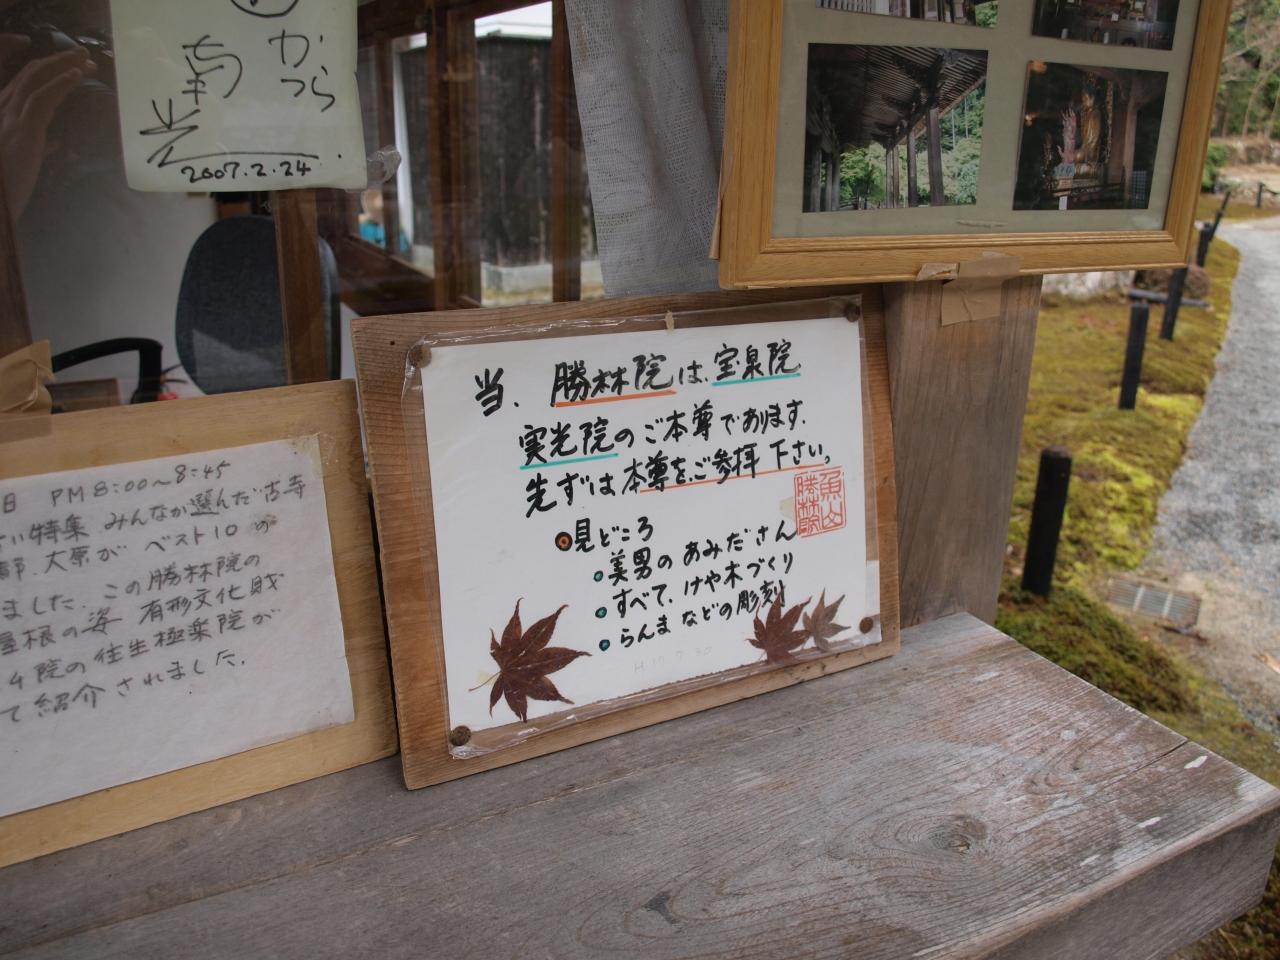 かつら
南光
2007.2.24.
当、勝林院は、宝泉院
実光院のご本尊であります.
先ずは本尊をご参拝下さい。
魚山
勝林院
見どころ
・美男のあみださん
・すべて、けや木づくり
・らんまなどの彫刻
H17.7.30
日 PM8:00〜8:45
い特集 みんなが選んだ古寺
都、大原が ベスト10の
ました. この勝林院の
屋根の姿 有形文化財
院の往生極楽院が
て紹介されました.